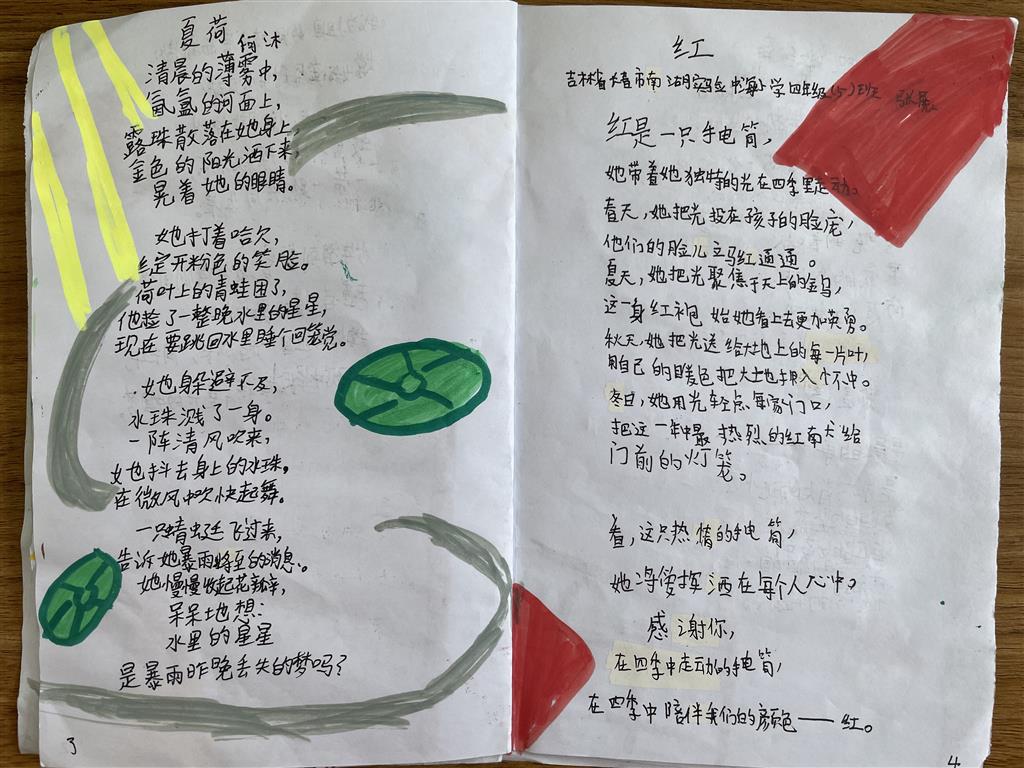 夏荷 何沐
清晨的薄雾中,
氤氲的河面上,
露珠散落在她身上,
金色的阳光洒下来,
晃着她的眼睛。
她打着哈欠,
绽开粉色的笑脸。
荷叶上的青蛙困了,
他捡了一整晚水里的星星,
现在要跳回水里睡个回笼觉。
她身躲避不及,
水珠溅了一身。
一阵清风吹来,
她抖去身上的水珠,
在微风中欢快起舞。
一只蜻蜓飞过来,
告诉她暴雨将至的消息。
她慢慢收起花瓣,
呆呆地想:
水里的星星
是暴雨昨晚丢失的梦吗?
3
红
吉林省长春市南湖实验中海小学四年级(5)班 张展
红是一只手电筒,
她带着她独特的光在四季里走动。
春天,她把光投在孩子的脸庞,
他们的脸儿立马红通通。
夏天,她把光聚焦于天上的
这一身红袍 她看上去更加英勇。
秋天,她把光送给大地上的每一片叶,
用自己的暖色把大地拥入怀中。
冬日,她用光轻点每家门口,
把这一年中最热烈的红 给
门前的灯笼。
看,这只热情的手电筒,
她将 洒在每个人心中。
感谢你,
在四季中走动的手电筒,
在四季中陪伴我们的颜色——红。
4